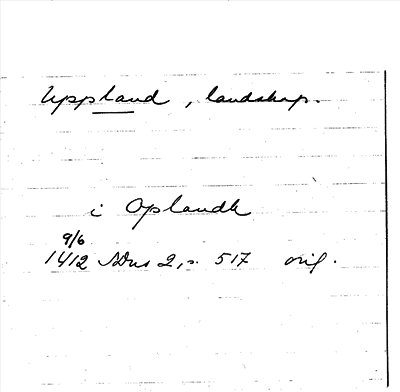 Uppland, landskap.
i Oplandh
9/6
1412 SDns 2, s. 517 orig.